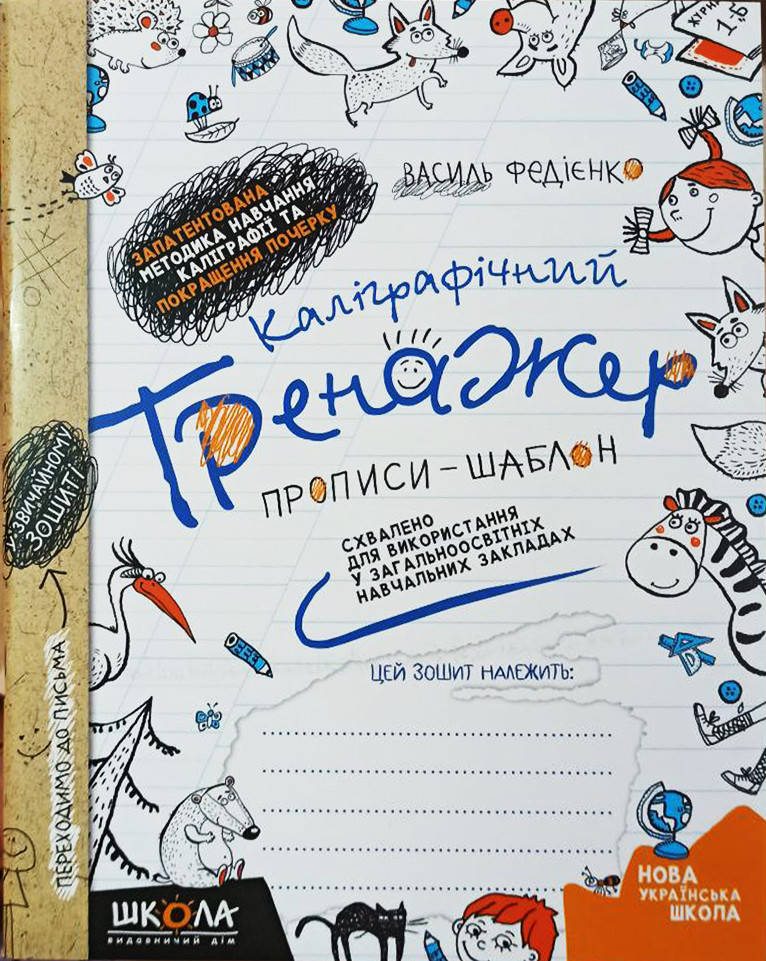 ХІРУ
1,5
ВАСИЛЬ ФЕДІЄНКО
ЗАПАТЕНТОВАНА
МЕТОДИКА НАВЧАННЯ
КАЛІГРАФІЇ ТА
ПОКРАЩЕННЯ ПОЧЕРКУ
Каліграфічний
Тренажер
ПРОПИСИ – ШАБЛОН
СХВАЛЕНО
ДЛЯ ВИКОРИСТАННЯ
У ЗАГАЛЬНООСВІТНІХ
НАВЧАЛЬНИХ ЗАКЛАДАХ
ЦЕЙ ЗОШИТ НАЛЕЖИТЬ:
ПЕРЕХОДИМО ДО ПИСЬМА
У ЗВИЧАЙНОМУ
ЗОШИТІ
ШКОЛА
ВИДАВНИЧИЙ ДІМ
НОВА
УКРАЇНСЬКА
ШКОЛА